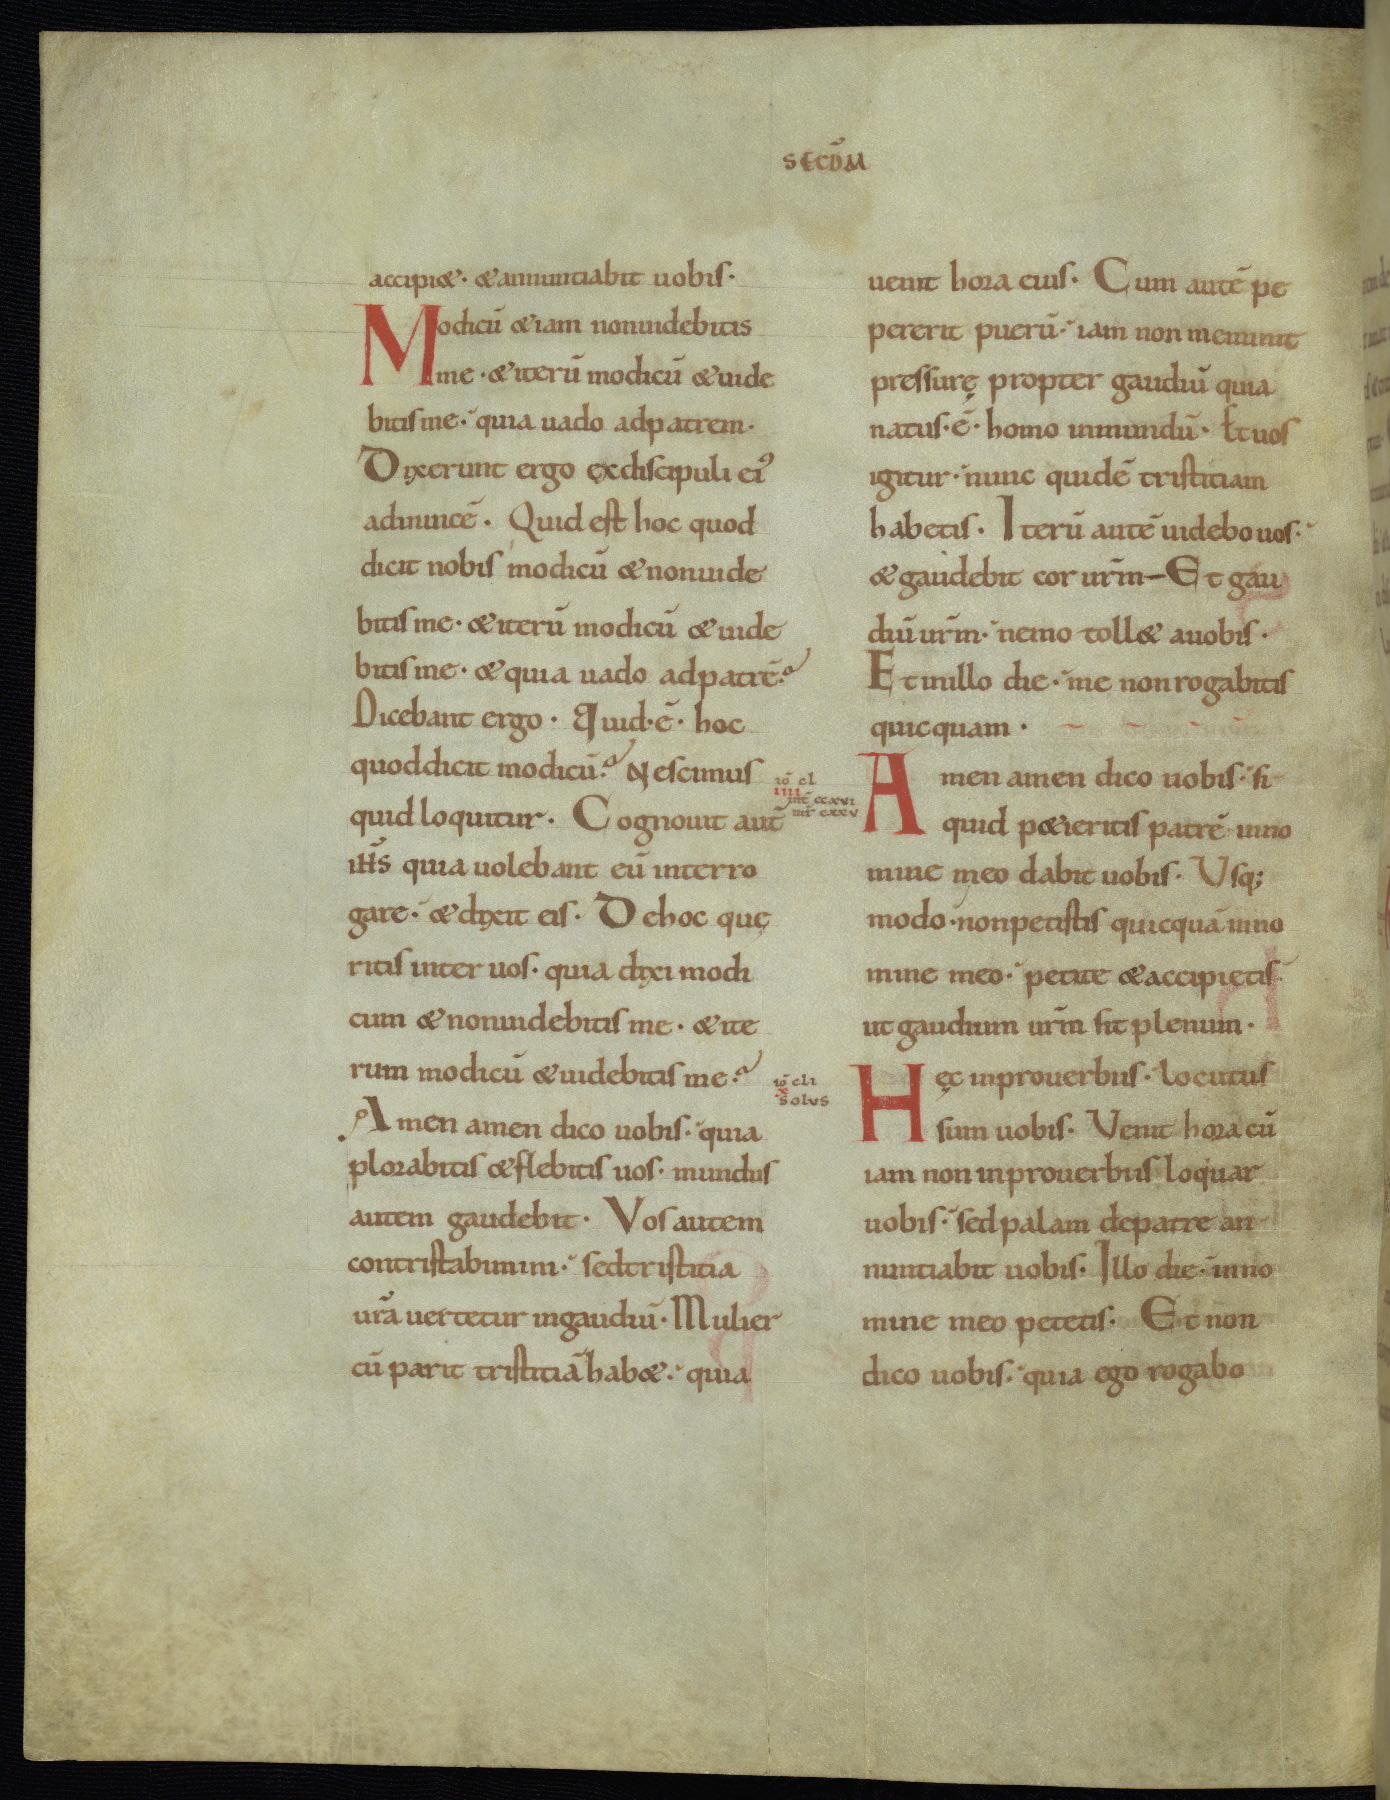 SECŪM
accipi&. &annuntiabit uobis.
Modicū &iam nonuidebitis
me. &iterū modicū &uide
bitis me. quia uado adpatrem.
Dixerunt ergo exdiscipuli ei᾽
adinuicē. Quid est hoc quod
dicit nobis modicū &nonuide
bitis me. &iterū modicū &uide
bitis me. &quia uado adpatrē.
Dicebant ergo. Quid.ē. hoc
quoddicit modicū. Nescimus
quid loquitur. Cognouit autē
ihs̄ quia uolebant eū interro
gare. &dixit eis. Dehoc quę
ritis inter uos. quia dixi modi
cum &nonuidebitis me. &ite
rum modicū &uidebitis me.
Amen amen dico uobis. quia
plorabitis &flebitis uos. mundus
autem gaudebit. Vos autem
contristabimini. sedtristitia
ur̄a uertetur ingaudiū. Mulier
cū parit tristitiā hab&. quia
iō cl
iiii
mt̄ ccxvi
mr̄ cxxv
iō cli
x
solus
uenit hora eius. Cum autē pe
pererit puerū. iam non meminit
pressurę propter gaudiū quia
natus.ē. homo inmundū. Et uos
igitur. nunc quidē tristitiam
habetis. Iterū autē uidebo uos.
&gaudebit cor ur̄m Et gau
diū ur̄m. nemo toll& auobis.
Et inillo die. me nonrogabitis
quicquam.
Amen amen dico uobis. si
quid p&ieritis patrē inno
mine meo dabit uobis. Vsq;
modo. nonpetistis quicquā inno
mine meo. petite &accipietis
ut gaudium ur̄m sit plenum.
Hęc inprouerbiis. locutus
sum uobis. Venit hora cū
iam non inprouerbiis loquar
uobis. sed palam depatre an
nuntiabit uobis. Illo die. inno
mine meo petetis. Et non
dico uobis. quia ego rogabo